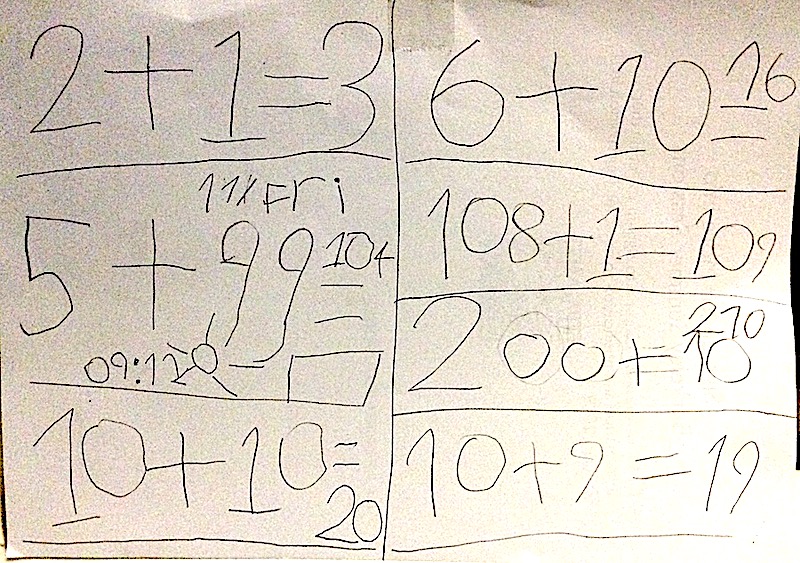 2+1=3
11% Fri
5+99=104
09:12
10+10=20
6+10=16
108+1=109
200+=10 210
10+9=19